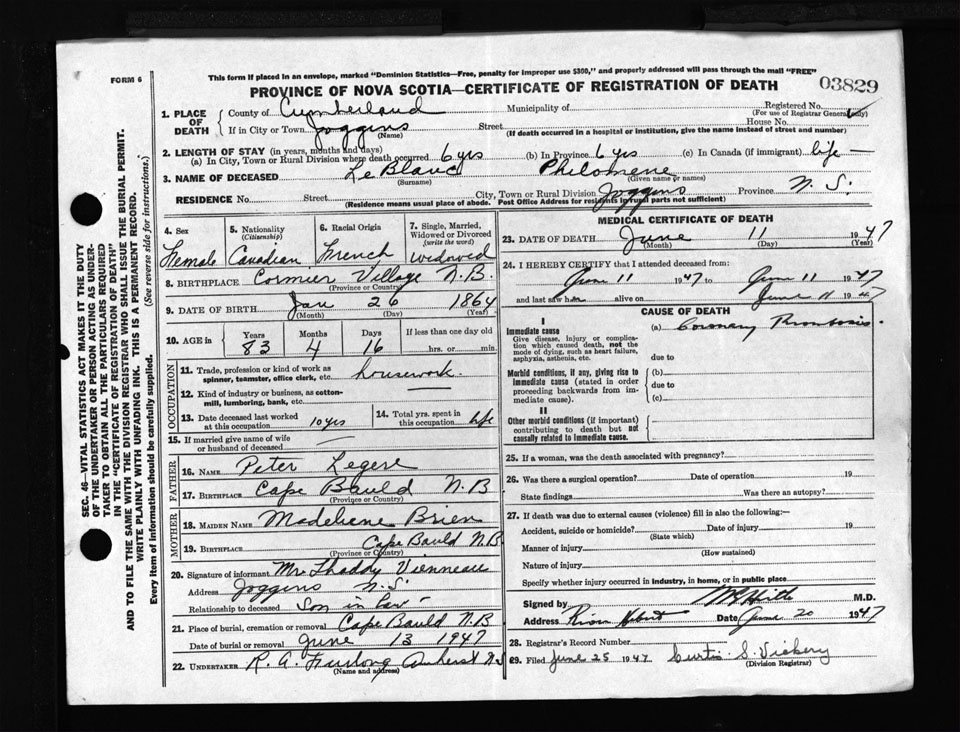 FORM 6
This form if placed in an envelope, marked "Dominion Statistics—Free, penalty for improper use $300," and properly addressed will pass through the mail "FREE"
03829
PROVINCE OF NOVA SCOTIA—CERTIFICATE OF REGISTRATION OF DEATH
SEC. 46—VITAL STATISTICS ACT MAKES IT THE DUTY
OF THE UNDERTAKER OR PERSON ACTING AS UNDER-
TAKER TO OBTAIN ALL THE PARTICULARS REQUIRED
IN THE "CERTIFICATE OF REGISTRATION OF DEATH"
AND TO FILE THE SAME WITH THE DIVISION REGISTRAR WHO SHALL ISSUE THE BURIAL PERMIT.
WRITE PLAINLY WITH UNFADING INK. THIS IS A PERMANENT RECORD.
Every item of information should be carefully supplied. (See reverse side for instructions.)
1. PLACE OF DEATH
County of Cumberland Municipality of Registered No.
(For use of Registrar General only)
If in City or Town Joggins Street House No.
(Name) (If death occurred in a hospital or institution, give the name instead of street and number)
2. LENGTH OF STAY (in years, months and days)
(a) In City, Town or Rural Division where death occurred 6 yrs (b) In Province 6 yrs (c) In Canada (if immigrant) life —
3. NAME OF DECEASED LeBlanc Philomene
(Surname) (Given name or names)
RESIDENCE No. Street City, Town or Rural Division Joggins Province N.S.
(Residence means usual place of abode. Post Office Address for residents in rural parts not sufficient)
4. Sex 5. Nationality (Citizenship) 6. Racial Origin 7. Single, Married, Widowed or Divorced (write the word)
Female Canadian French widowed
8. BIRTHPLACE Cormier Village N.B.
(Province or Country)
9. DATE OF BIRTH Jan 26 1864
(Month) (Day) (Year)
10. AGE in Years Months Days If less than one day old
83 4 16 hrs. or min.
OCCUPATION
11. Trade, profession or kind of work as spinner, teamster, office clerk, etc. housework.
12. Kind of industry or business, as cotton-mill, lumbering, bank, etc.
13. Date deceased last worked at this occupation 10 yrs 14. Total yrs. spent in this occupation life
15. If married give name of wife or husband of deceased —
FATHER
16. NAME Peter Legere
17. BIRTHPLACE Cape Bauld N.B
(Province or Country)
MOTHER
18. MAIDEN NAME Madeliene Brien
19. BIRTHPLACE Cape Bauld N.B
(Province or Country)
20. Signature of informant Mr. Thaddy Vienneau
Address Joggins N.S.
Relationship to deceased Son in law
21. Place of burial, cremation or removal Cape Bauld N.B
Date of burial or removal June 13 1947
22. UNDERTAKER R. A. Furlong Amherst N.S
(Name and address)
MEDICAL CERTIFICATE OF DEATH
23. DATE OF DEATH June 11 1947
(Month) (Day) (Year)
24. I HEREBY CERTIFY that I attended deceased from:
June 11 1947 to June 11 1947
and last saw h alive on June 11 1947
CAUSE OF DEATH
I
Immediate cause (a) Coronary Thrombosis.
Give disease, injury or complication which caused death, not the mode of dying, such as heart failure, asphyxia, asthenia, etc.
due to
Morbid conditions, if any, giving rise to immediate cause (stated in order proceeding backwards from immediate cause).
(b)
due to
(c)
II
Other morbid conditions (if important) contributing to death but not causally related to immediate cause.
25. If a woman, was the death associated with pregnancy?
26. Was there a surgical operation? Date of operation 19
State findings Was there an autopsy?
27. If death was due to external causes (violence) fill in also the following:—
Accident, suicide or homicide? Date of injury 19
(State which)
Manner of injury
(How sustained)
Nature of injury
Specify whether injury occurred in industry, in home, or in public place
Signed by M.D.
Address River Hebert Date June 20 1947
28. Registrar's Record Number
29. Filed June 25 1947 Curtis S. Vickery
(Division Registrar)